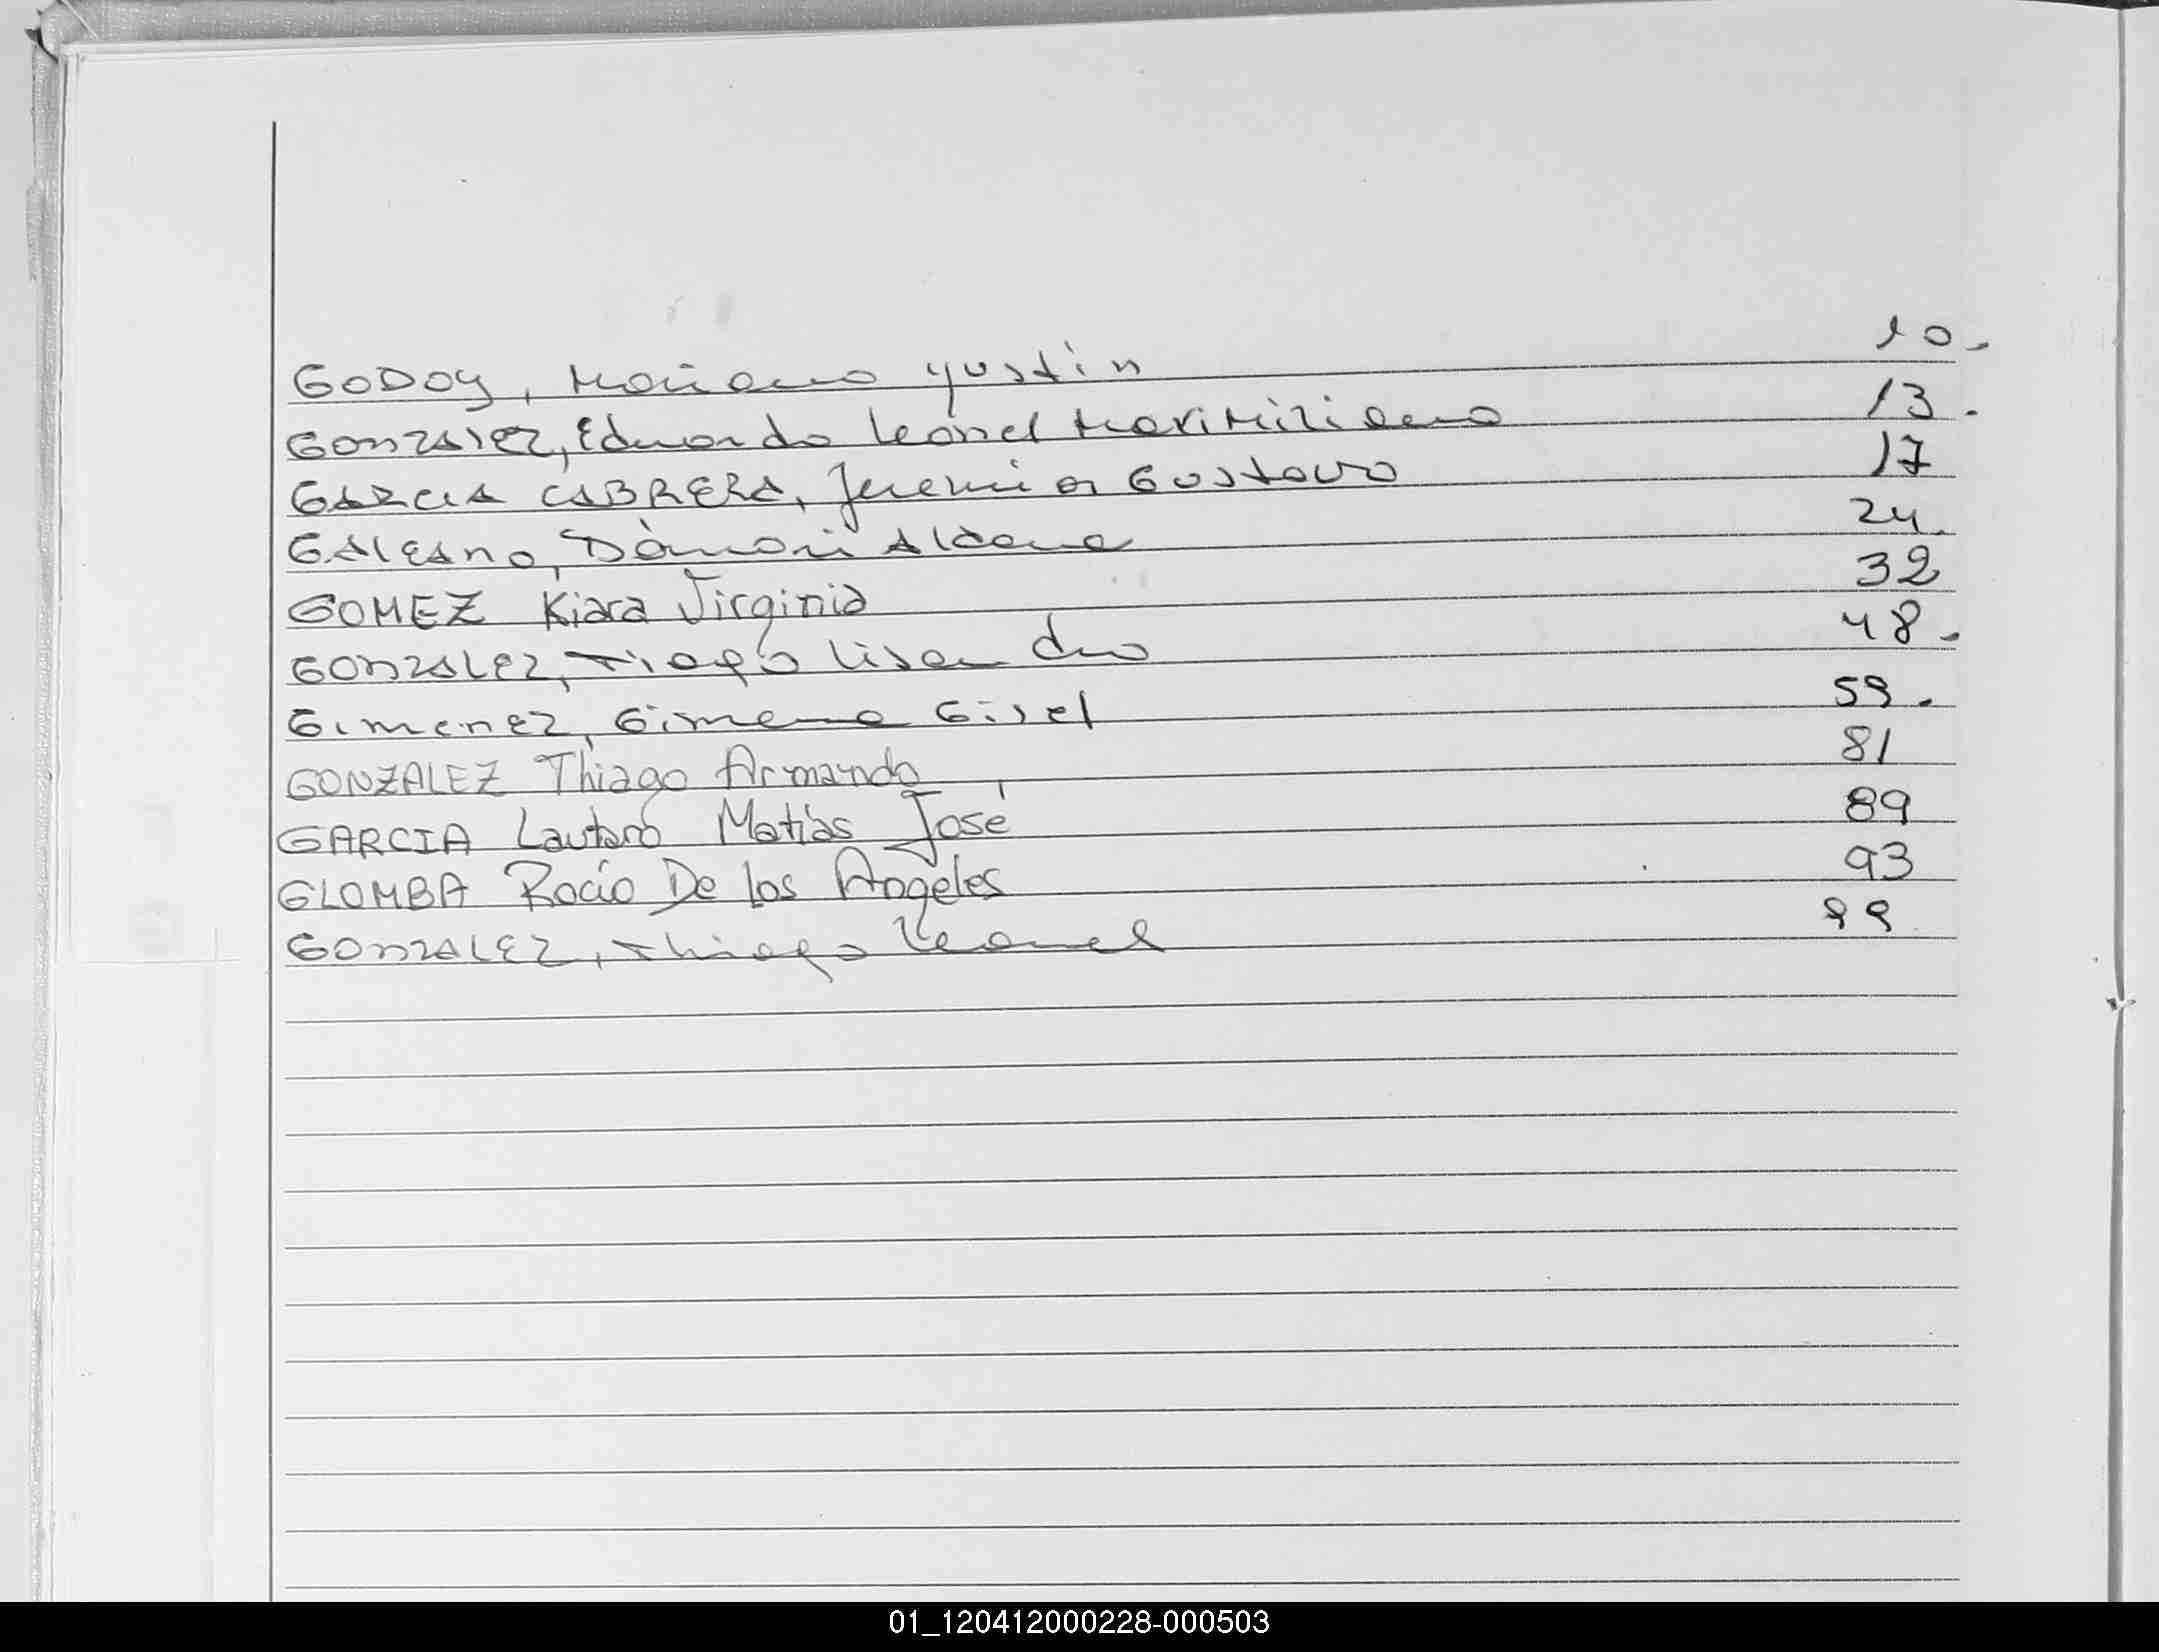 GODOY, Mariano Yustin 10.
GONZALEZ, Eduardo Leonel Maximiliano 13.
GARCIA CABRERA, Jeremias Gustavo 17
GALEANO, Dámari Aldana 24.
GOMEZ Kiara Virginia 32
GONZALEZ, Tiago Lisandro 48.
GIMENEZ, Gimena Gisel 59.
GONZALEZ Thiago Armando 81
GARCIA Lautaro Matías José 89
GLOMBA Rocío De los Angeles 93
GONZALEZ, Thiago Leonel 99
01_120412000228-000503